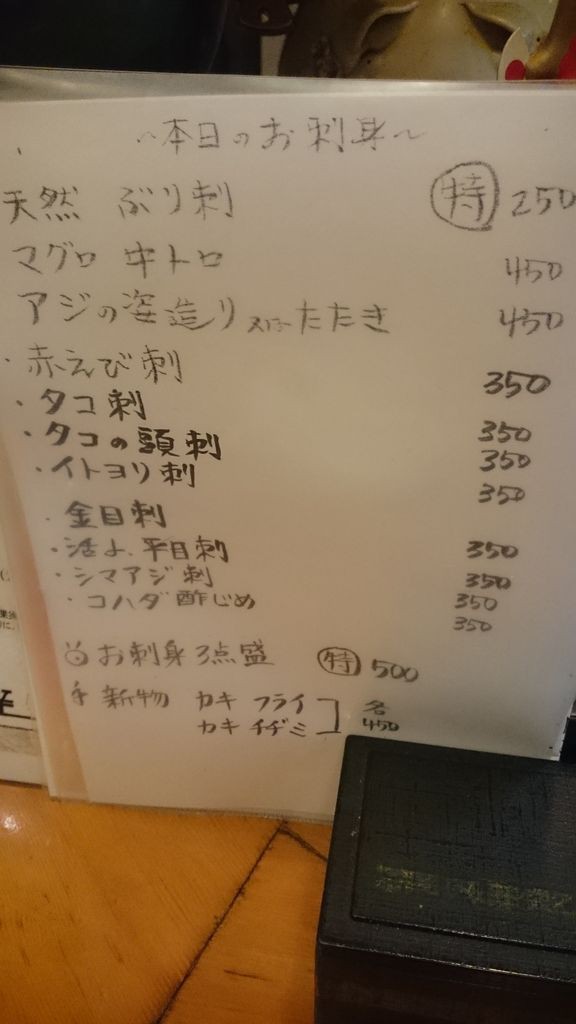 〜本日のお刺身〜
天然 ぶり刺 特 250
マグロ 中トロ 450
アジの姿造り 又は たたき 450
・赤えび刺 350
・タコ刺 350
・タコの頭刺 350
・イトヨリ刺 350
・金目刺 350
・活〆 平目刺 350
・シマアジ刺 350
・コハダ酢じめ 350
お刺身3点盛 特 500
新物 カキ フライ 各
カキ チヂミ 450